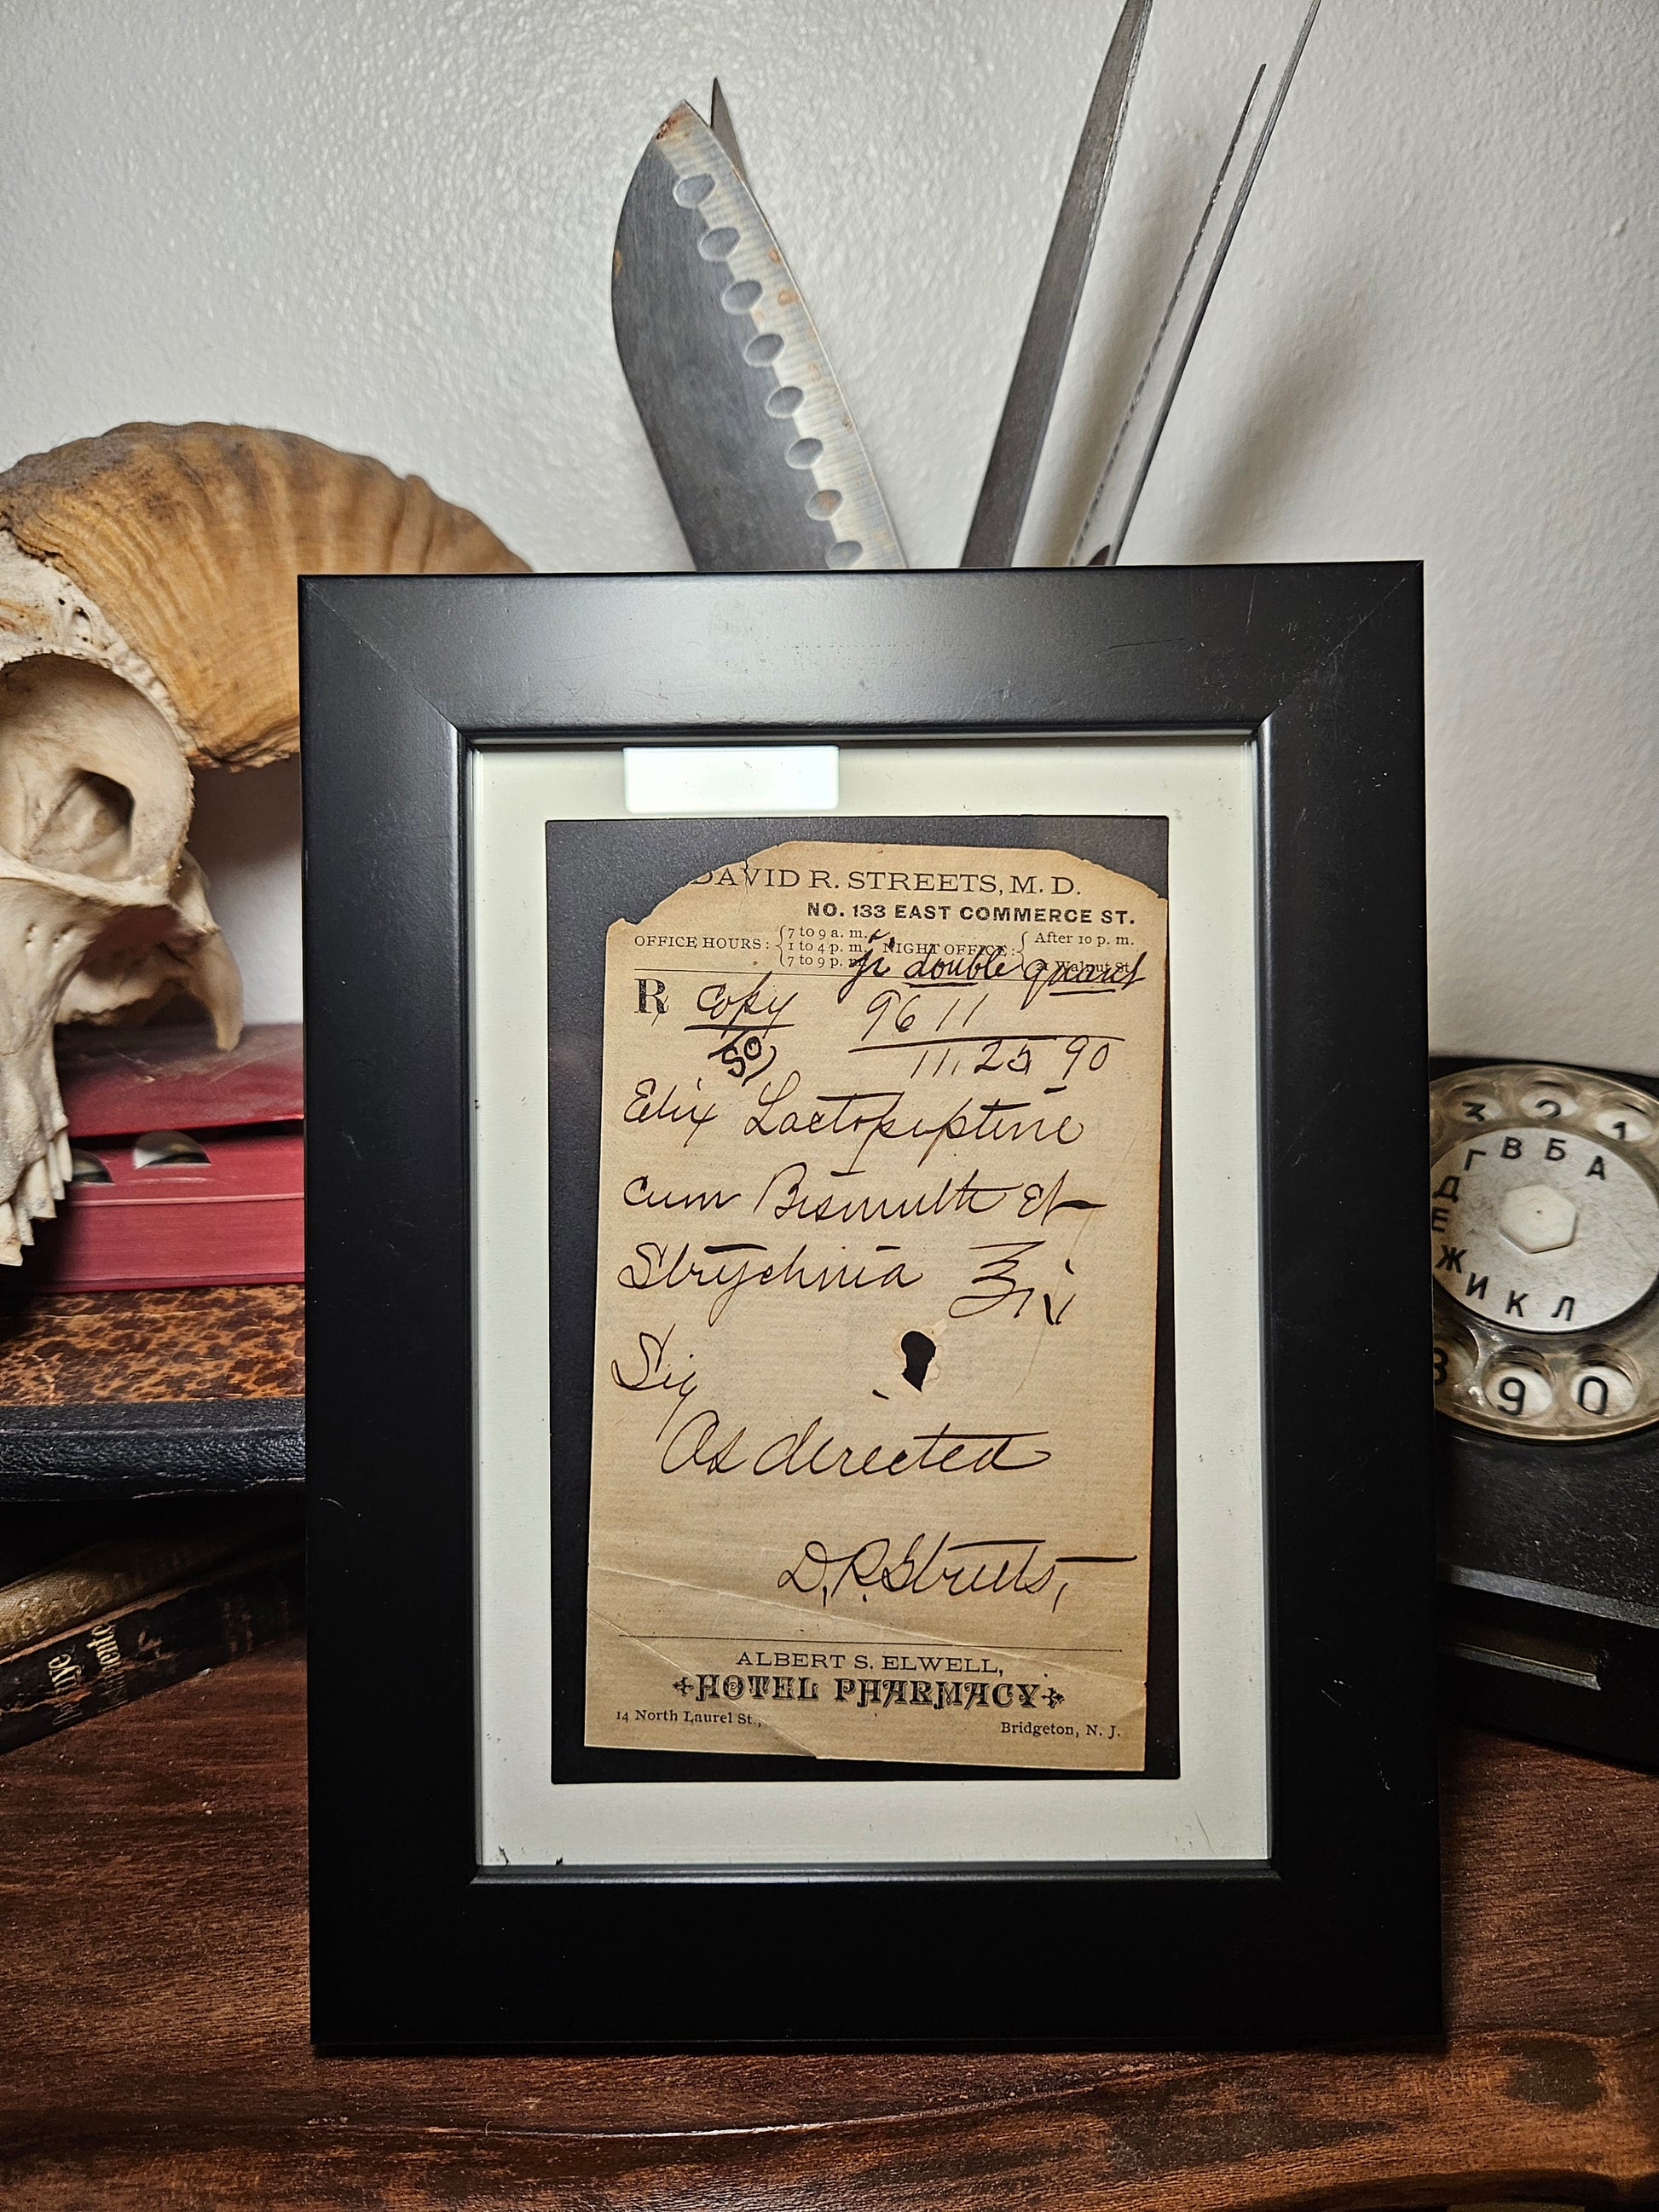 DAVID R. STREETS, M. D.
NO. 133 EAST COMMERCE ST.
OFFICE HOURS: 7 to 9 a. m. 1 to 4 p. m. 7 to 9 p. m. NIGHT OFFICE: After 10 p. m. Walnut St.
double quant
R Copy 9611
50 11, 25 90
Elix Lactopeptine
cum Bismuth Et
Strychnia ℥iv
Sig
As directed
D. R. Streets,
ALBERT S. ELWELL,
HOTEL PHARMACY
14 North Laurel St., Bridgeton, N. J.
3 2 1
Г В Б А
Д
Е
Ж И К Л
8 9 0